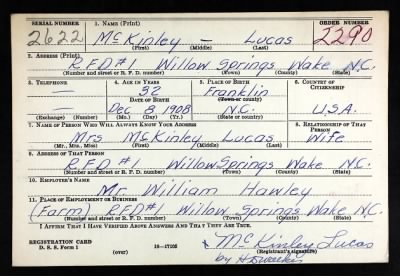 SERIAL NUMBER 1. NAME (Print) ORDER NUMBER
2622 McKinley — Lucas 2290
(First) (Middle) (Last)
2. ADDRESS (Print)
R.F.D #1 Willow Springs Wake N.C.
(Number and street or R. F. D. number) (Town) (County) (State)
3. TELEPHONE 4. AGE IN YEARS 5. PLACE OF BIRTH 6. COUNTRY OF CITIZENSHIP
— 32 Franklin
DATE OF BIRTH (Town or county)
— Dec 5 1908 N.C. U.S.A.
(Exchange) (Number) (Mo.) (Day) (Yr.) (State or country)
7. NAME OF PERSON WHO WILL ALWAYS KNOW YOUR ADDRESS 8. RELATIONSHIP OF THAT PERSON
Mrs McKinley Lucas Wife
(Mr., Mrs., Miss) (First) (Middle) (Last)
9. ADDRESS OF THAT PERSON
R.F.D #1 Willow Springs Wake N.C.
(Number and street or R. F. D. number) (Town) (County) (State)
10. EMPLOYER'S NAME
Mr. William Hawley
11. PLACE OF EMPLOYMENT OR BUSINESS
(Farm) RFD #1 Willow Springs Wake N.C.
(Number and street or R. F. D. number) (Town) (County) (State)
I AFFIRM THAT I HAVE VERIFIED ABOVE ANSWERS AND THAT THEY ARE TRUE.
REGISTRATION CARD
D. S. S. Form 1 (over) 16—17105 McKinley Lucas
(Registrant's signature)
by